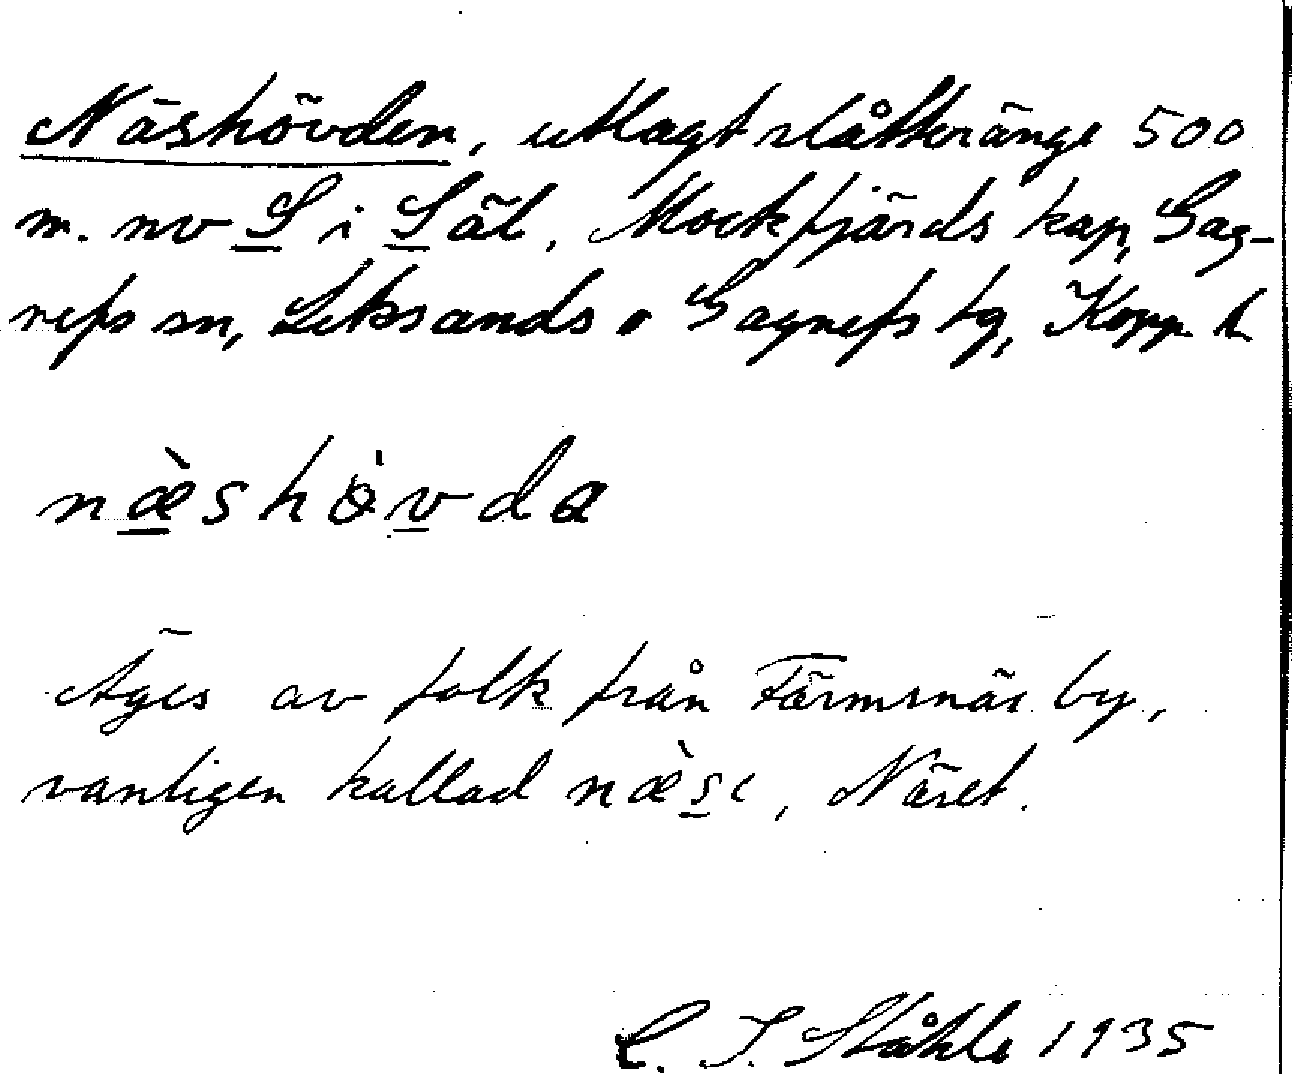 Näshövden, utlagt slåtteränge 500
m. nv S i Säl, Mockfjärds kap, Gag-
nefs sn, Leksands o Gagnefs tg, Kopp. l.
næ̀shövda
Äges av folk från Färmsnäs by,
vanligen kallad næ̀sɩ, Näset.
C. I. Ståhle 1935